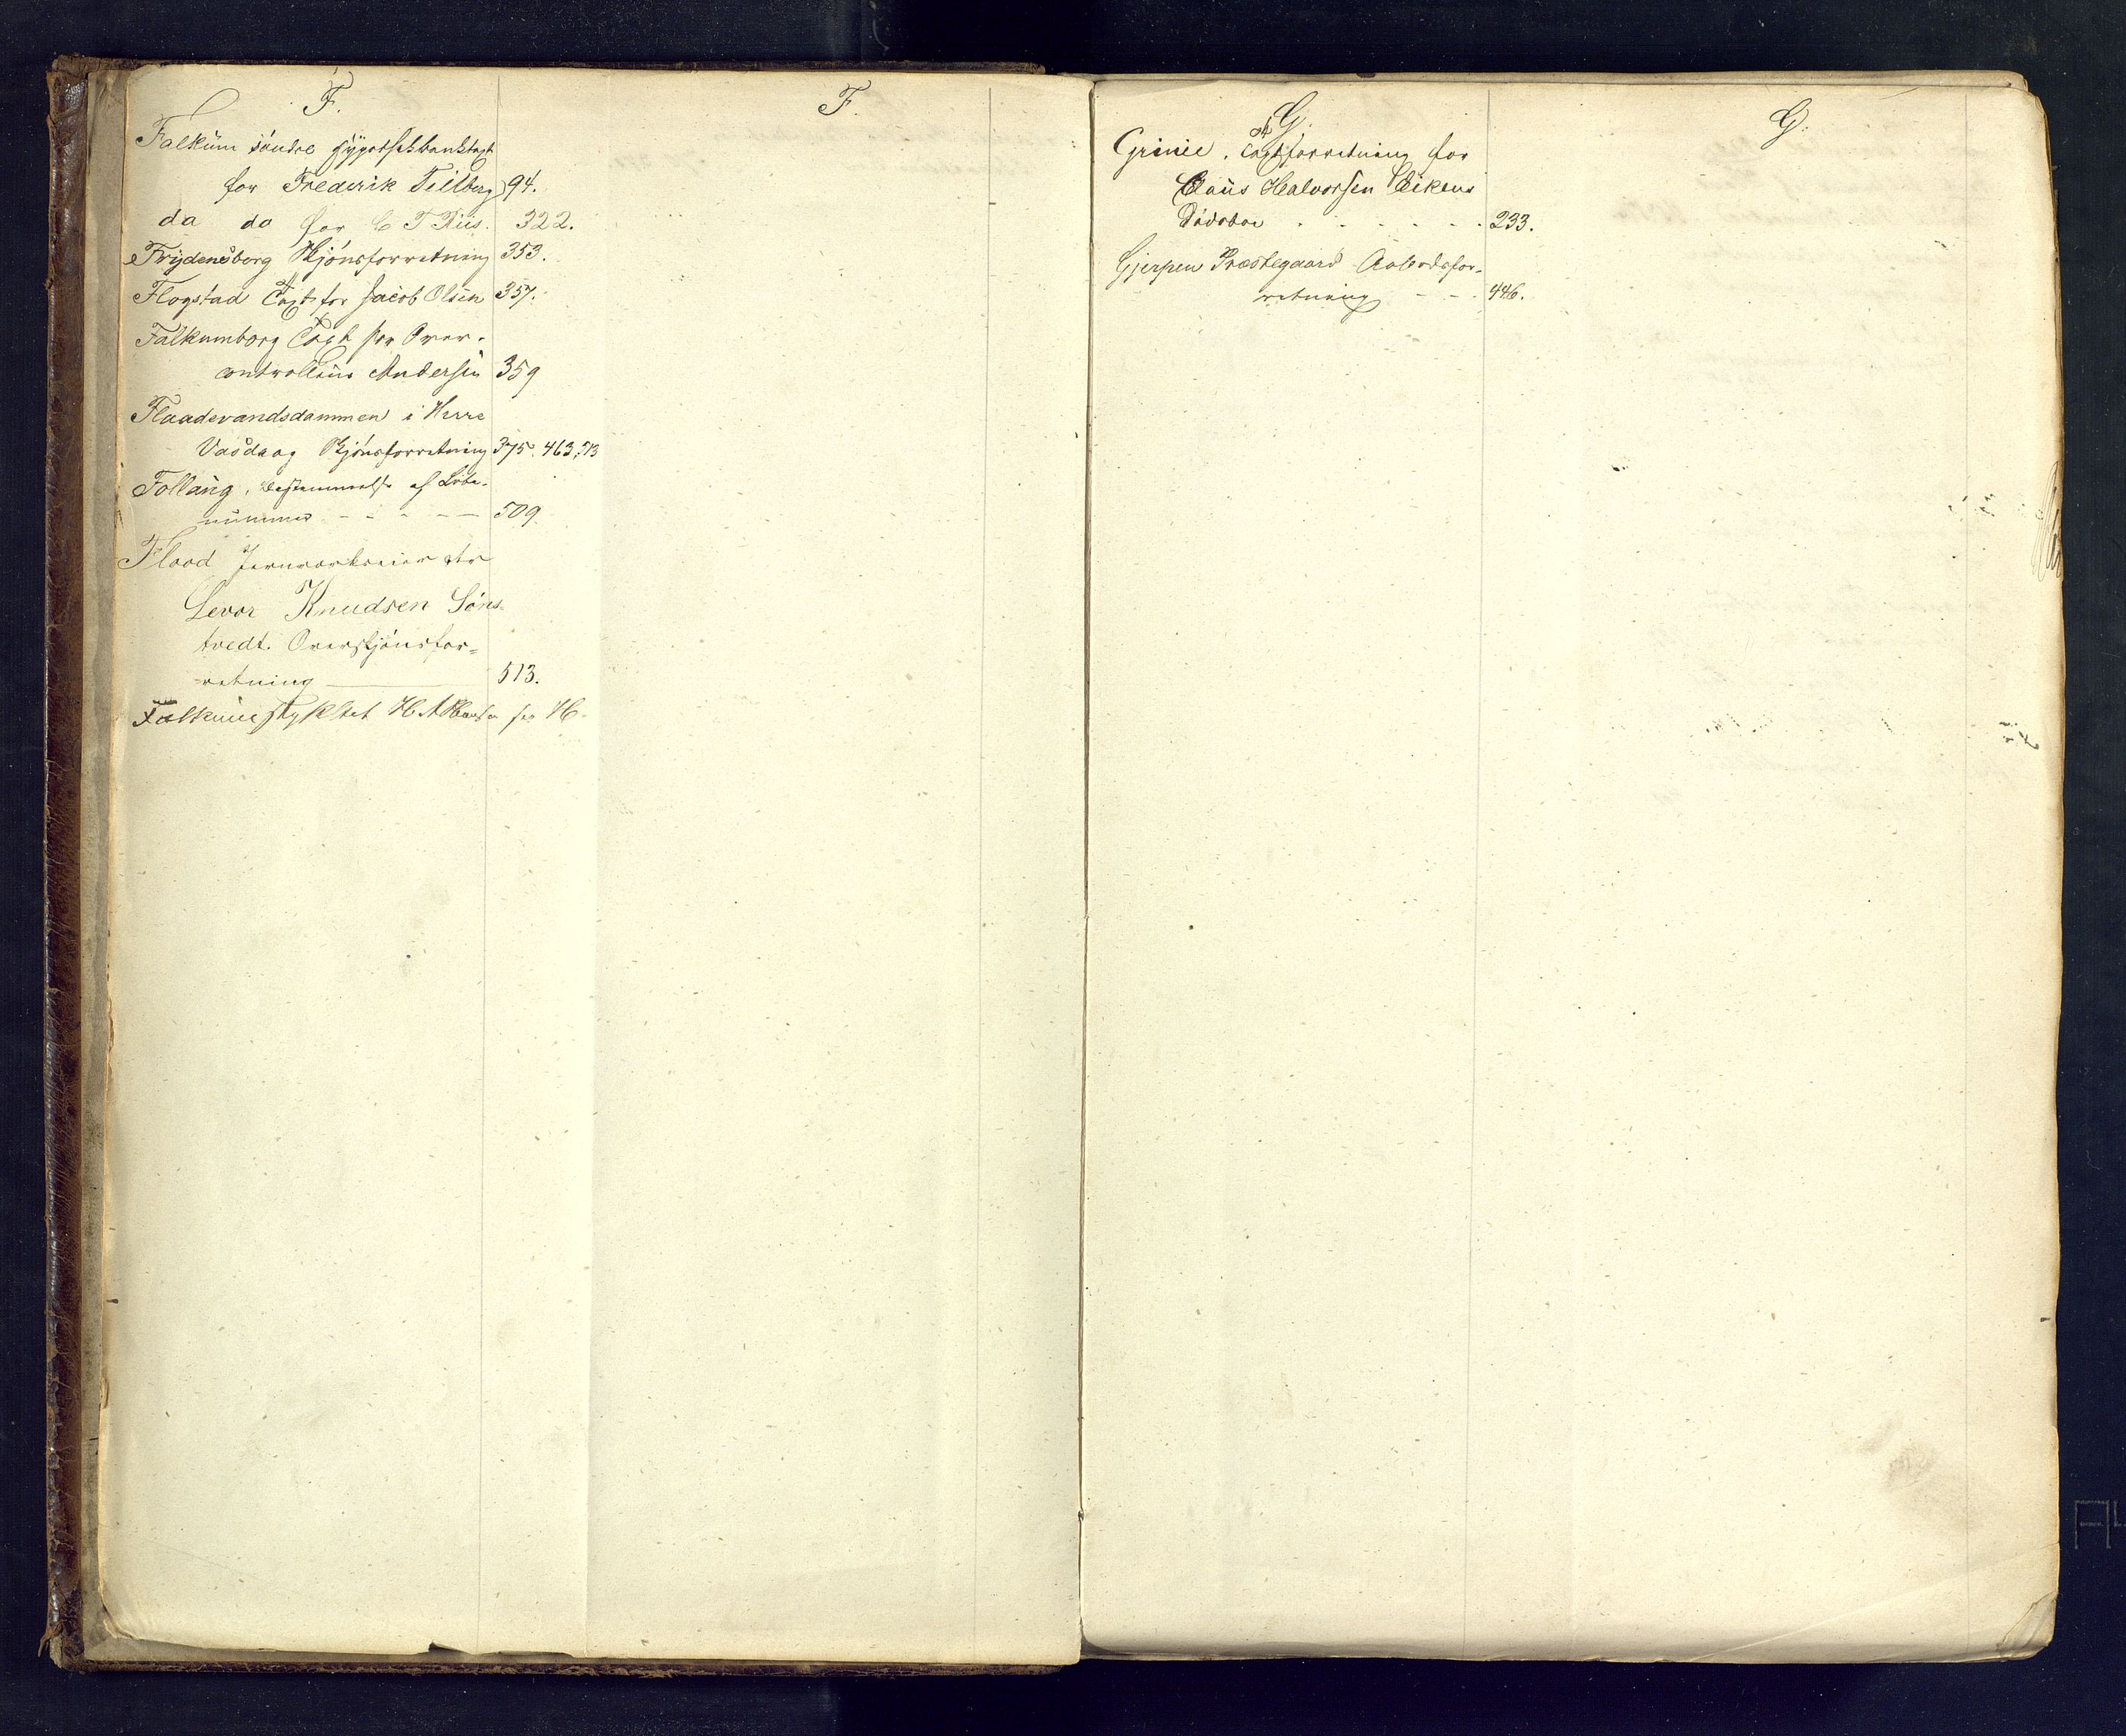 F.
Falkum söndre Hypothekbanktaxt
for Frederik Tellberg 94.
do do for C T Riis. 322.
Frydensborg Skjönsforretning 353.
Flogstad Taxt for Jacob Olsen 357.
Falkumborg Taxt for Over-
controlleur Andersen 359
Flaadevandsdammen i Herre
Vasdrag Skjönsforretning 375. 463, 513
Follaug, Bestemmelse af Löbe-
nummer - - - - - 509.
Flood Jernværkseier ctr
Levor Knudsen Söns-
tvedt. Overskjönsfor-
retning 513.
Falkum stykket H A Hansen se H.
F.
G.
Grinie. Taxtforretning for
Claus Halvorsen Eikens
Dödsbo . . . . . . 233.
Gjerpen Præstegaard Aabodsfor-
retning - - - 446.
G.